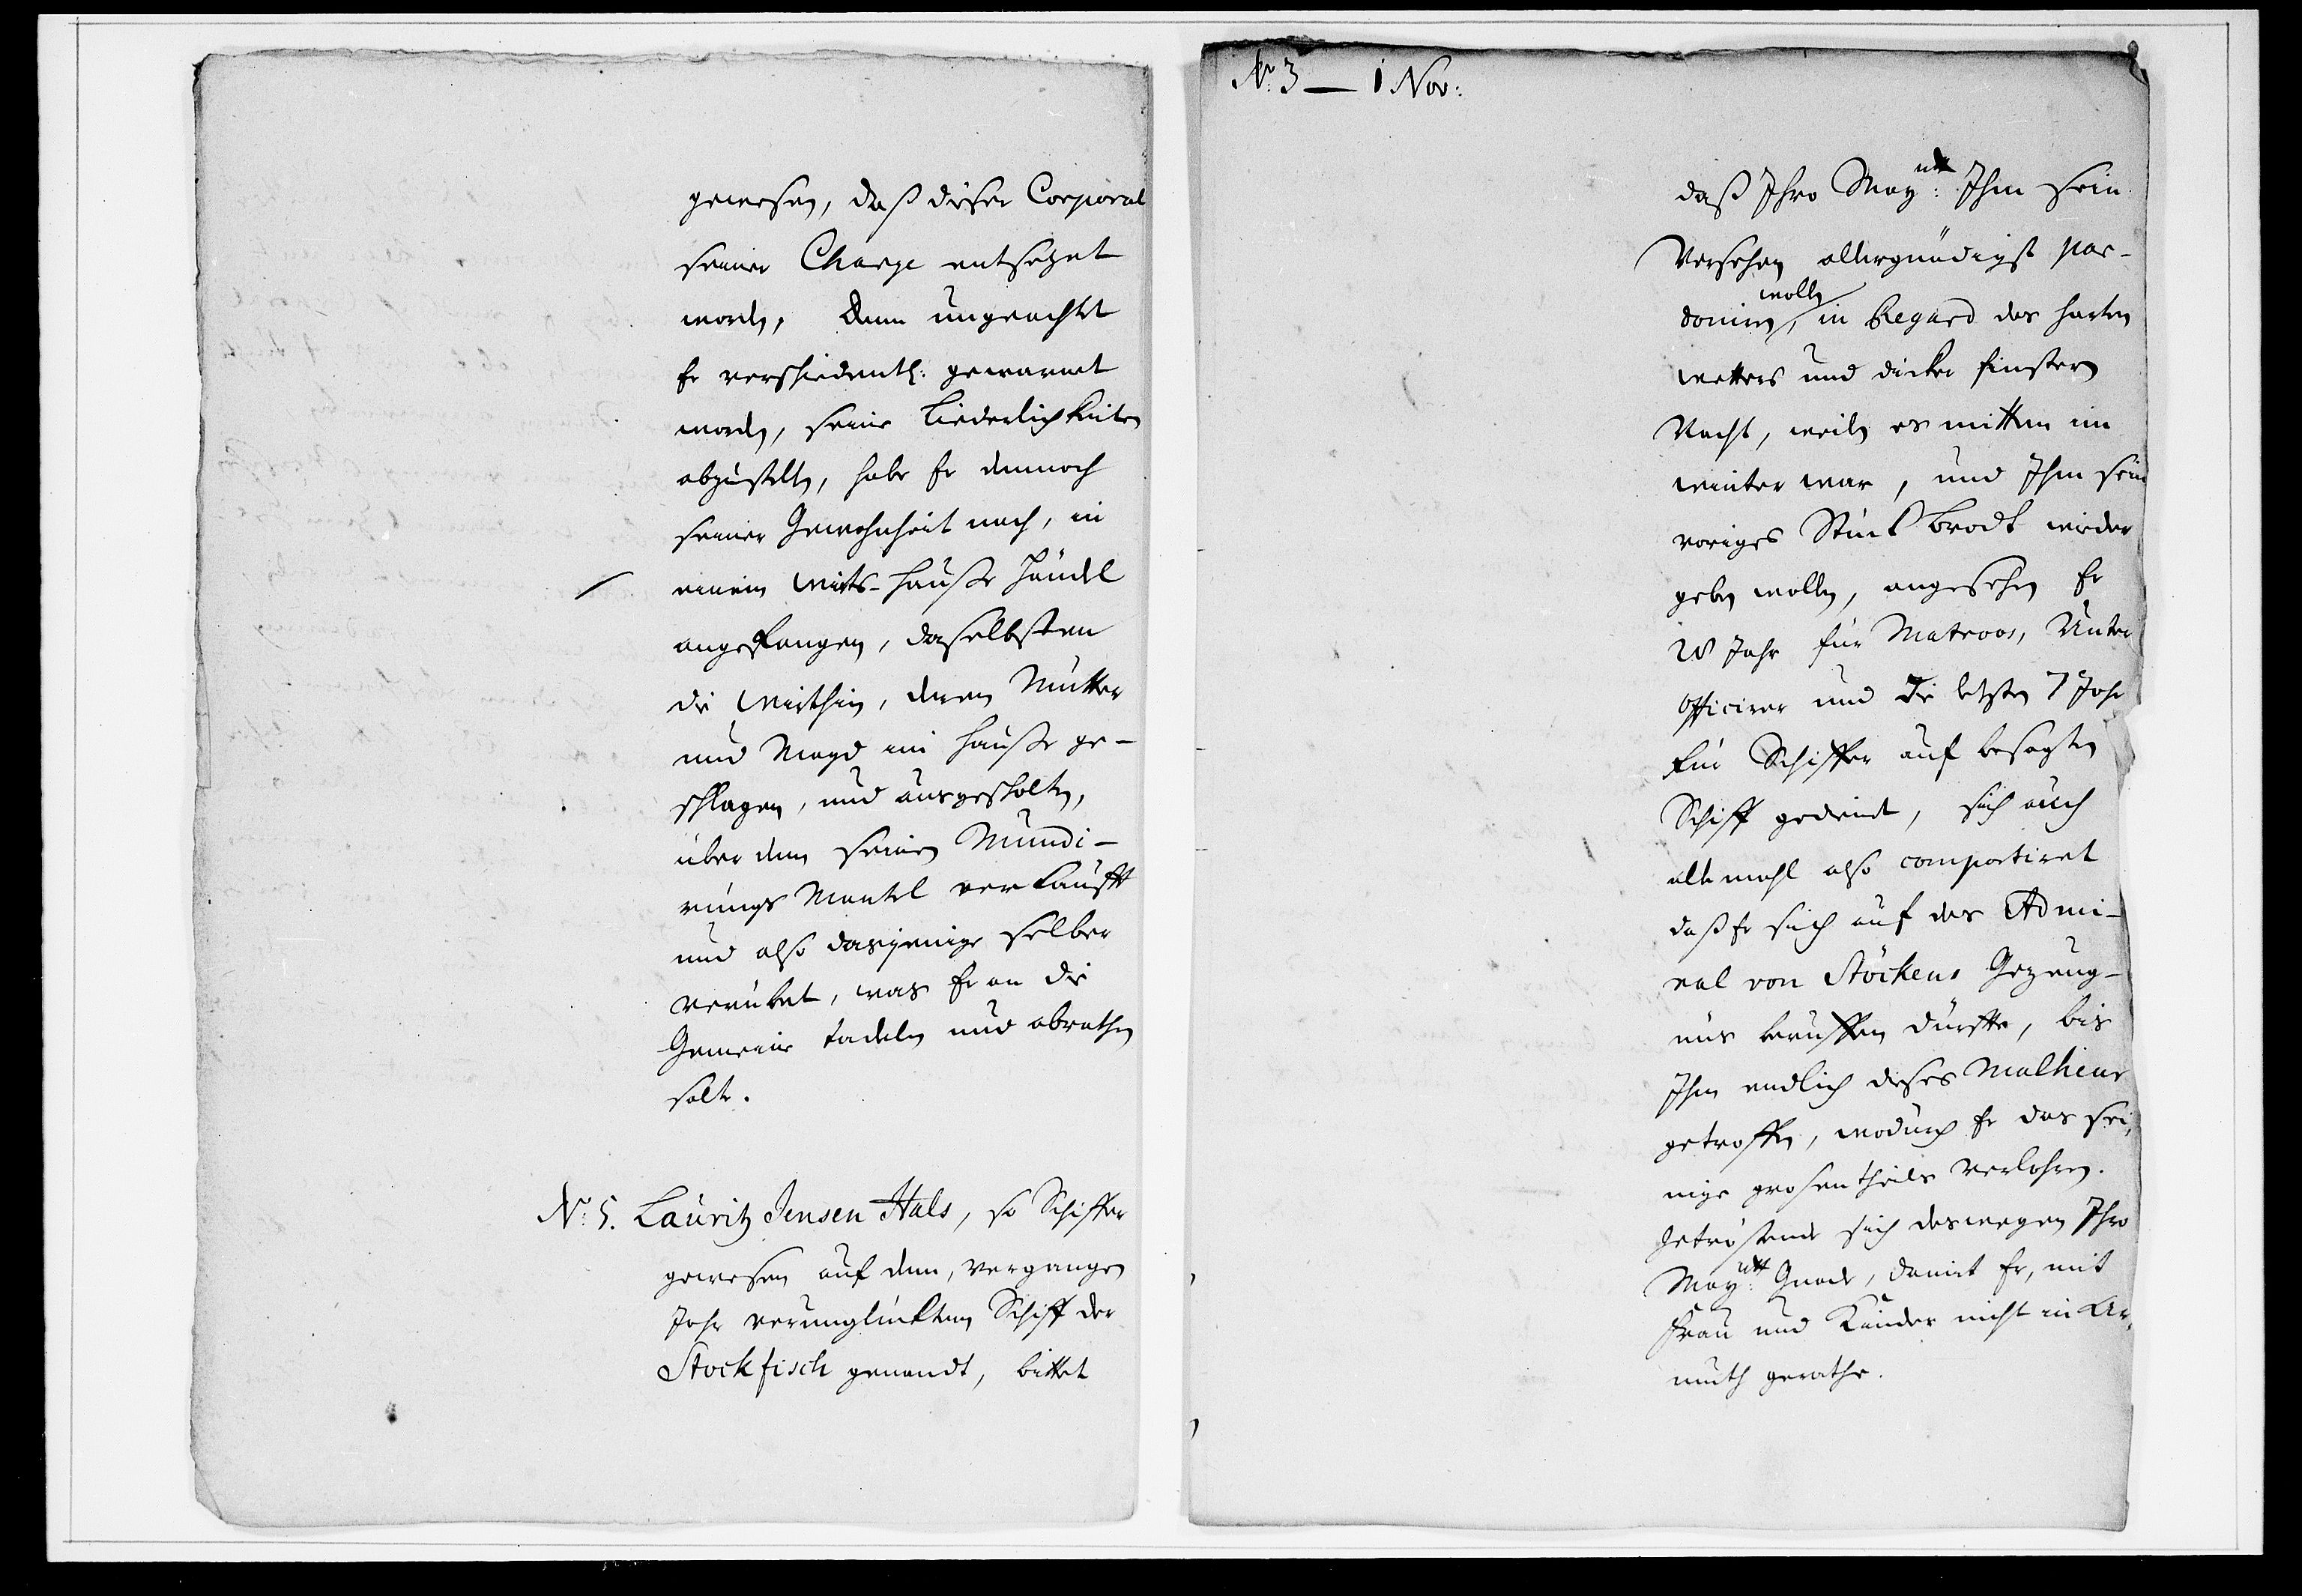 gewesen, daß dieser Corporal
seiner Charge entsetzet
worden, denn ungeachtet
Er verschiedentl: gewarnet
worden, seine Liederlichkeiten
abzustellen, habe Er dennoch
seiner Gewohnheit nach, in
einem Wirts-Hauße Händel
angefangen, daselbsten
die Wirthin, deren Mutter
und Magd im Hauße ge-
schlagen, und ausgescholten,
über dem seinen Mundi-
rungs Mantel verkaufft
und also dasjenige selber
verübet, was Er an die
Gemeine tadeln und abrathen
solte.
No: 5. Lauritz Jensen Hals, so Schiffer
gewesen auf dem, vergangen
Jahr verunglückten Schiff der
Stockfisch genandt, bittet
No: 3 — 1 Nov:
daß Ihro May:tt Ihm sein
Versehen allergnädigst par-
doniren wollen, in Regard des harten
Wetters und dicker finstern
Nacht, weilen es mitten im
Winter war, und Ihm sein
voriges Stück Brodt wieder
geben wollen, angesehen Er
28 Jahr für Matroos, Unter
Officirer und die letzten 7 Jahr
für Schiffer auf besagten
Schiff gedienet, sich auch
allemahl also comportiret
daß Er sich auf des Admi-
ral von Stöckens Gezeug-
nüs beruffen dürffte, bis
Ihm endlich dieses Malheur
getroffen, wodurch Er das sei-
nige grosentheils verlohren.
Getröstende sich deswegen Ihro
May:tt Gnade, damit Er, mit
Frau und Kinder nicht in Ar-
muth gerathe.